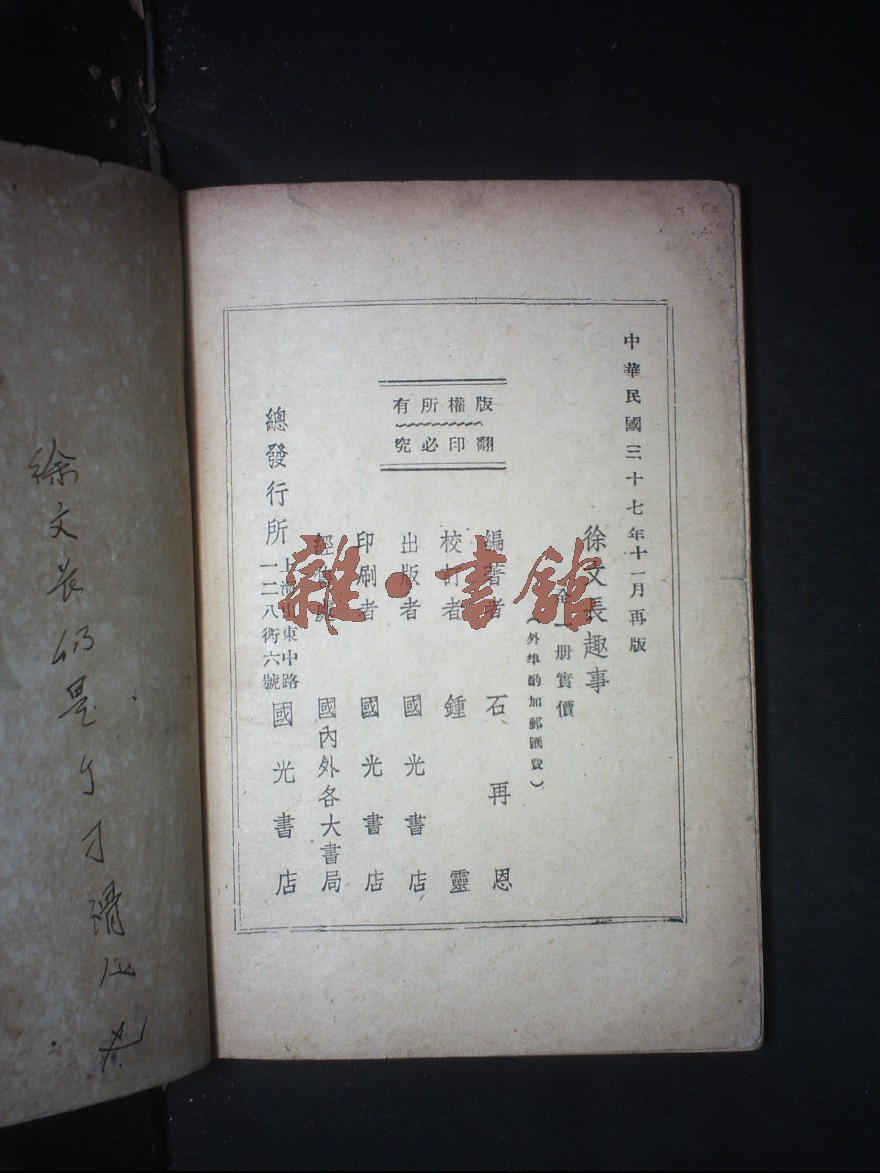 中華民國三十七年十一月再版
徐文長趣事
全一册實價
(外埠酌加郵匯費)
版權所有
翻印必究
編著者 石再恩
校打者 鍾靈
出版者 國光書店
印刷者 國光書店
經售處 國內外各大書局
總發行所 上海山東中路一二八衖六號 國光書店
雜·書館
徐文長